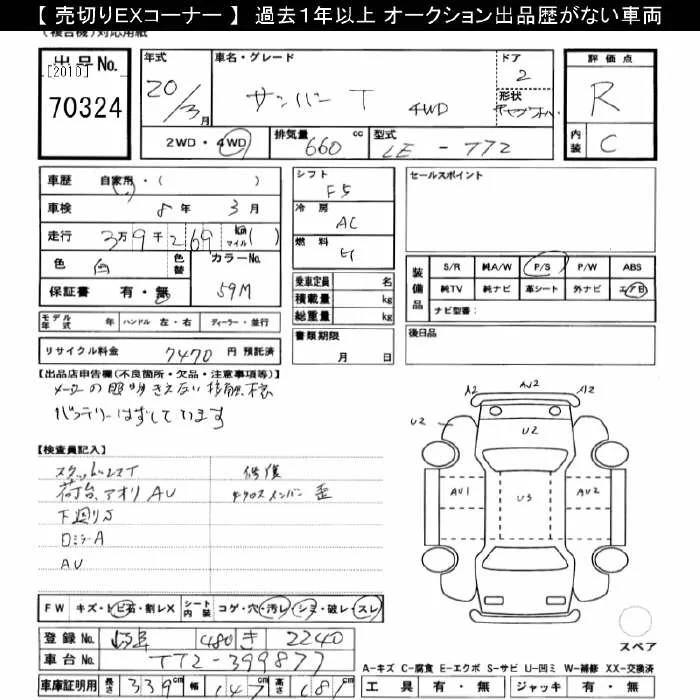 【 売切りEXコーナー 】 過去１年以上 オークション出品歴がない車両
(複合機)対応用紙
出 品 No. [2010] 70324
年式 20/3月
車名・グレード サンバー T 4WD
ドア 2
形状
2WD・4WD
排気量 660 cc
型式 LE - TT2
評 価 点 R
内装 C
車歴 自家用・( )
車検 8年 3月
走行 3万9千269 km マイル( )
色 白 色替
カラーNo. 59M
保証書 有・無
シフト F5
冷房 AC
燃料
乗車定員 名
積載量 kg
総重量 kg
セールスポイント
装備品 S/R 純A/W P/S P/W ABS
純TV 純ナビ 革シート 外ナビ エアB
ナビ型番:
モデル年式 年 ハンドル 左・右 ディーラー・並行
書類期限 月 日
後日品
リサイクル料金 7470 円 預託済
【出品店申告欄(不良箇所・欠品・注意事項等)】
バッテリーはずしています
【検査員記入】
スタットレスT 修復
荷台、アオリ AU クロスメンバー 歪
下廻りサ
ロミラーA
AU
A2 AU2 A2
U2 U2
AU1 U3 AU2
スペア
FW キズ・トビ石・割レX シート内装 コゲ・穴・汚レ・シミ・破レ・スレ
登録 No. 岐阜 480 き 2240
車台 No. TT2-399877
A－キズ C－腐食 E－エクボ S－サビ U－凹ミ W－補修 XX－交換済
車庫証明用 長さ 339cm 幅 147cm 高さ 187cm
工 具 有・無 ジャッキ 有・無